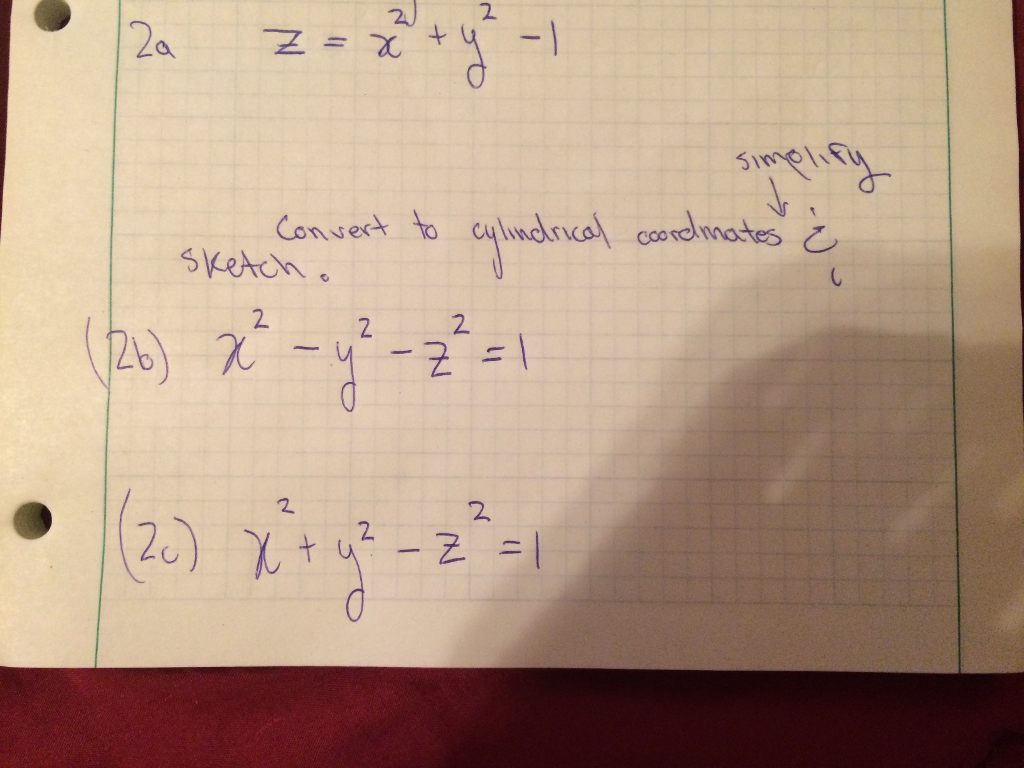 2a z = x² + y² - 1
simplify
Convert to cylindrical coordinates &
sketch.
(2b) x² - y² - z² = 1
(2c) x² + y² - z² = 1